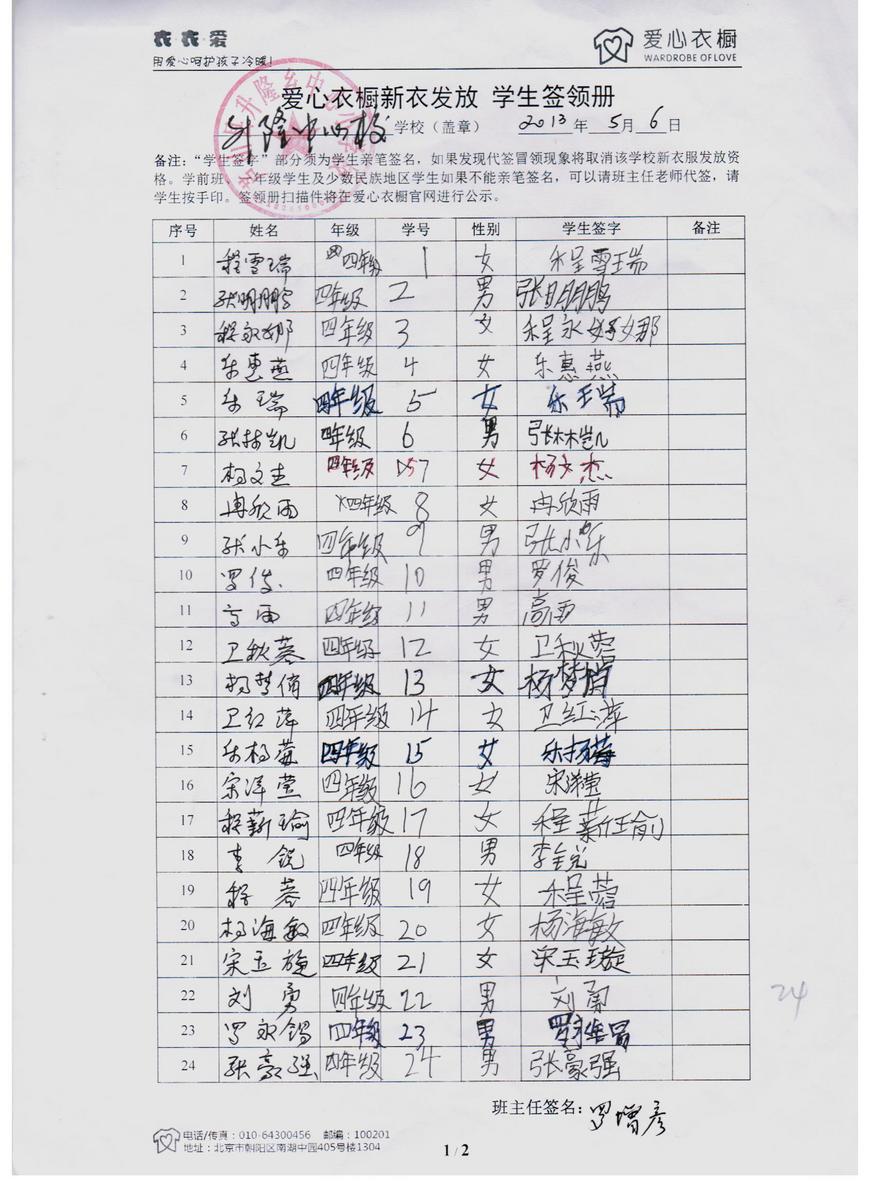 衣·衣·爱
用爱心呵护孩子冷暖!
爱心衣橱
WARDROBE OF LOVE
爱心衣橱新衣发放 学生签领册
升隆中心校 学校（盖章） 2013 年 5 月 6 日
备注：“学生签字”部分须为学生亲笔签名，如果发现代签冒领现象将取消该学校新衣服发放资
格。学前班、一年级学生及少数民族地区学生如果不能亲笔签名，可以请班主任老师代签，请
学生按手印。签领册扫描件将在爱心衣橱官网进行公示。
序号 姓名 年级 学号 性别 学生签字 备注
1 程雪瑞 四年级 1 女 程雪瑞
2 张明鹏 四年级 2 男 张明鹏
3 程永娜 四年级 3 女 程永娜
4 乐惠燕 四年级 4 女 乐惠燕
5 乐瑞 四年级 5 女 乐瑞
6 张林凯 四年级 6 男 张林凯
7 杨文杰 四年级 7 女 杨文杰
8 冉欣雨 四年级 8 女 冉欣雨
9 张小乐 四年级 9 男 张小乐
10 罗俊 四年级 10 男 罗俊
11 高雨 四年级 11 男 高雨
12 卫秋蓉 四年级 12 女 卫秋蓉
13 杨梦倩 四年级 13 女 杨梦
14 卫红萍 四年级 14 女 卫红萍
15 乐杨莓 四年级 15 女 乐杨莓
16 宋洋莹 四年级 16 女 宋洋莹
17 程薪瑜 四年级 17 女 程薪瑜
18 李锐 四年级 18 男 李锐
19 程蓉 四年级 19 女 程蓉
20 杨海敏 四年级 20 女 杨海敏
21 宋玉旋 四年级 21 女 宋玉璇
22 刘勇 四年级 22 男 刘勇
23 罗永锡 四年级 23 男
24 张豪强 四年级 24 男 张豪强
24
班主任签名：罗增彦
电话/传真：010-64300456 邮编：100201
地址：北京市朝阳区南湖中园405号楼1304
1 / 2